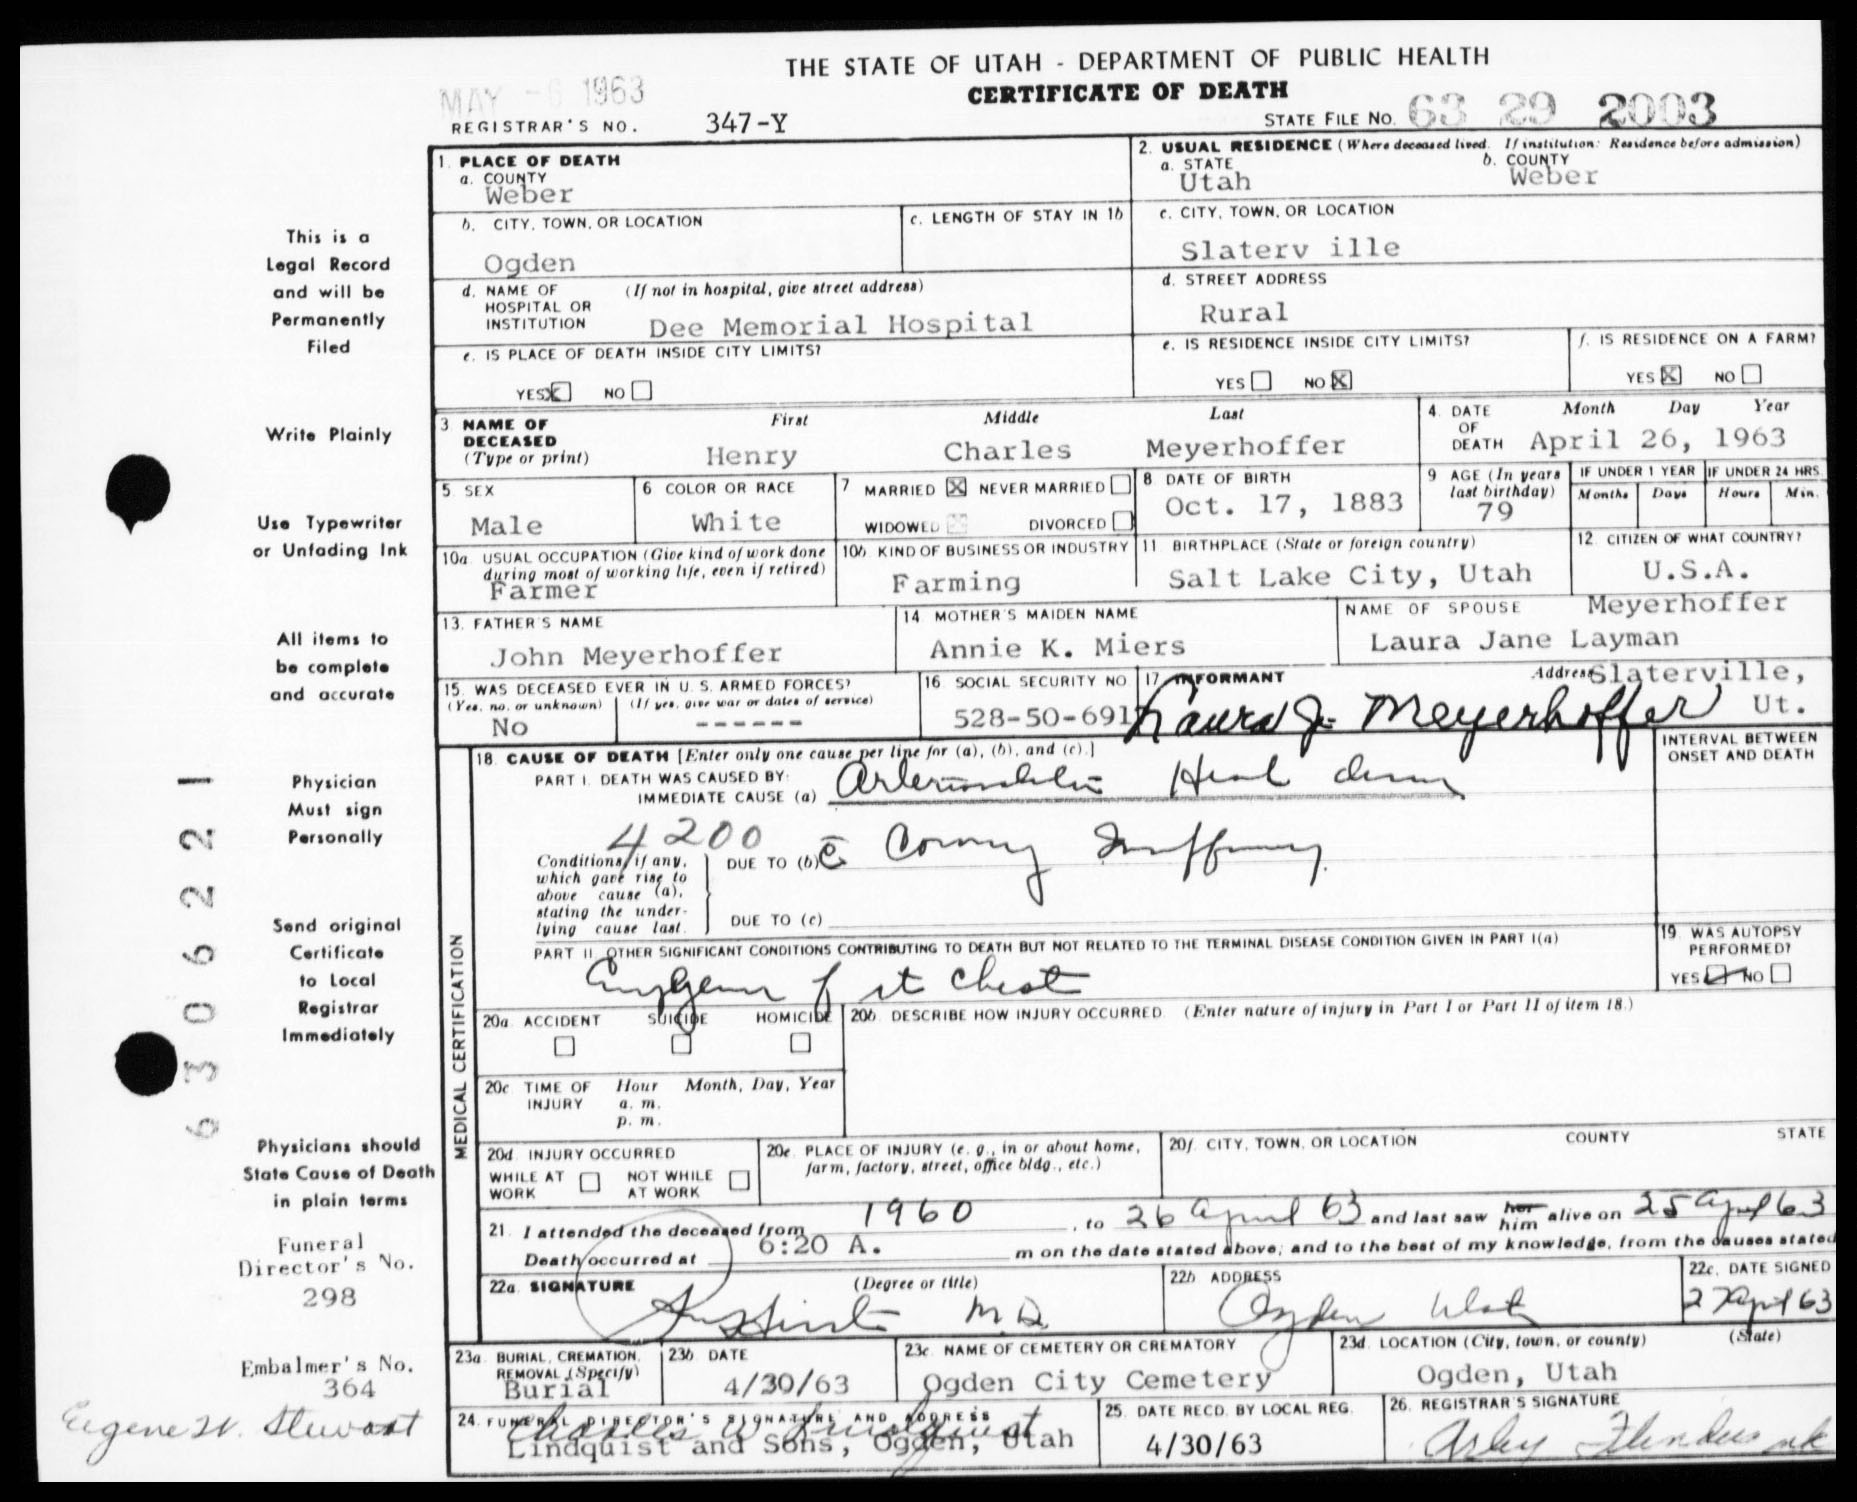 THE STATE OF UTAH - DEPARTMENT OF PUBLIC HEALTH
CERTIFICATE OF DEATH
MAY - 6 1963
REGISTRAR'S NO. 347-Y
STATE FILE NO. 63 29 2003
1. PLACE OF DEATH
a. COUNTY
Weber
2. USUAL RESIDENCE (Where deceased lived. If institution: Residence before admission)
a. STATE
Utah
b. COUNTY
Weber
b. CITY, TOWN, OR LOCATION
Ogden
c. LENGTH OF STAY IN 1b
c. CITY, TOWN, OR LOCATION
Slaterv ille
d. NAME OF HOSPITAL OR INSTITUTION
(If not in hospital, give street address)
Dee Memorial Hospital
d. STREET ADDRESS
Rural
e. IS PLACE OF DEATH INSIDE CITY LIMITS?
YES X NO
e. IS RESIDENCE INSIDE CITY LIMITS?
YES NO X
f. IS RESIDENCE ON A FARM?
YES X NO
3 NAME OF DECEASED (Type or print)
First Middle Last
Henry Charles Meyerhoffer
4. DATE OF DEATH
Month Day Year
April 26, 1963
5. SEX
Male
6 COLOR OR RACE
White
7 MARRIED X NEVER MARRIED
WIDOWED DIVORCED
8 DATE OF BIRTH
Oct. 17, 1883
9 AGE (In years last birthday)
79
IF UNDER 1 YEAR
Months Days
IF UNDER 24 HRS.
Hours Min.
10a. USUAL OCCUPATION (Give kind of work done during most of working life, even if retired)
Farmer
10b. KIND OF BUSINESS OR INDUSTRY
Farming
11. BIRTHPLACE (State or foreign country)
Salt Lake City, Utah
12. CITIZEN OF WHAT COUNTRY?
U.S.A.
13. FATHER'S NAME
John Meyerhoffer
14 MOTHER'S MAIDEN NAME
Annie K. Miers
NAME OF SPOUSE Meyerhoffer
Laura Jane Layman
15. WAS DECEASED EVER IN U. S. ARMED FORCES?
(Yes, no, or unknown) (If yes, give war or dates of service)
No ------
16. SOCIAL SECURITY NO.
528-50-691
17 INFORMANT
Laura J. Meyerhoffer
Address Slaterville, Ut.
MEDICAL CERTIFICATION
18. CAUSE OF DEATH [Enter only one cause per line for (a), (b), and (c).]
INTERVAL BETWEEN ONSET AND DEATH
PART I. DEATH WAS CAUSED BY:
IMMEDIATE CAUSE (a) Heart
4200
Conditions, if any, which gave rise to above cause (a), stating the underlying cause last.
DUE TO (b)
DUE TO (c)
PART II. OTHER SIGNIFICANT CONDITIONS CONTRIBUTING TO DEATH BUT NOT RELATED TO THE TERMINAL DISEASE CONDITION GIVEN IN PART I(a)
Empyema of rt chest
19. WAS AUTOPSY PERFORMED?
YES NO
20a. ACCIDENT SUICIDE HOMICIDE
20b. DESCRIBE HOW INJURY OCCURRED. (Enter nature of injury in Part I or Part II of item 18.)
20c. TIME OF INJURY
Hour Month, Day, Year
a. m.
p. m.
20d. INJURY OCCURRED
WHILE AT WORK NOT WHILE AT WORK
20e. PLACE OF INJURY (e. g., in or about home, farm, factory, street, office bldg., etc.)
20f. CITY, TOWN, OR LOCATION COUNTY STATE
21. I attended the deceased from 1960, to 26 April 63 and last saw her him alive on 25 April 63
Death occurred at 6:20 A. m on the date stated above; and to the best of my knowledge, from the causes stated
22a. SIGNATURE (Degree or title)
M.D.
22b. ADDRESS
Ogden Utah
22c. DATE SIGNED
27 April 63
23a. BURIAL, CREMATION, REMOVAL (Specify)
Burial
23b. DATE
4/30/63
23c. NAME OF CEMETERY OR CREMATORY
Ogden City Cemetery
23d. LOCATION (City, town, or county) (State)
Ogden, Utah
24. FUNERAL DIRECTOR'S SIGNATURE AND ADDRESS
Charles W Lindquist
Lindquist and Sons, Ogden, Utah
25. DATE RECD. BY LOCAL REG.
4/30/63
26. REGISTRAR'S SIGNATURE
This is a
Legal Record
and will be
Permanently
Filed
Write Plainly
Use Typewriter
or Unfading Ink
All items to
be complete
and accurate
Physician
Must sign
Personally
Send original
Certificate
to Local
Registrar
Immediately
Physicians should
State Cause of Death
in plain terms
Funeral
Director's No.
298
Embalmer's No.
364
Eugene W. Stewart
6306221